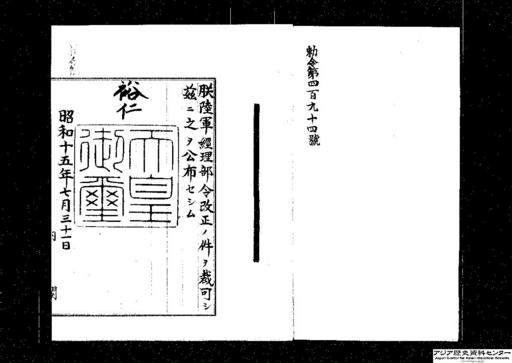 勅令第四百九十四號
朕陸軍經理部令改正ノ件ヲ裁可シ
茲ニ之ヲ公布セシム
裕仁
天皇御璽
昭和十五年七月三十一日
内閣
アジア歴史資料センター
Japan Center for Asian Historical Records